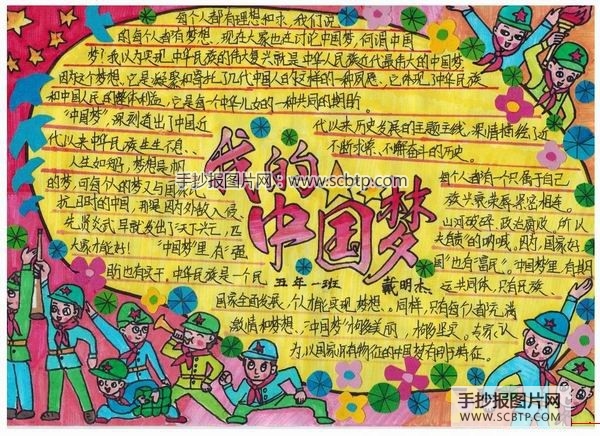 每个人都有理想和追求,我们说
的每个人都有梦想。现在大家也在讨论中国梦,何谓中国
梦?我以为实现中华民族的伟大复兴就是中华人民族近代最伟大的中国梦
因为这个梦想,它是凝聚和寄托了几代中国人的这样的一种夙愿,它体现了中华民族
和中国人民的整体利益,它是每个中华儿女的一种共同的期盼。
"中国梦"深刻道出了中国近
代以来历史发展的主题主线,深情描绘了近
代以来中华民族生生不息、
不断求索、不懈奋斗的历史。
人生如
梦想是
的梦,可每个人的梦又与国
每个人都有一个只属于自己
族兴衰荣
紧密相连。
抗日时的中国,那是因为外敌入侵、
山河破碎、政治腐败,所以
先贤
早就发出了"天下兴亡,匹
夫有责"的呐喊。因为,国家好
大家才能好!
"中国梦里,有"强
国"也有"富民"。"中国梦里,有
国的也有实干,中华民族是一个
运共同体,只有民族、
国家全面发展,个人才能实现梦想。同样,只有每个人都充满
激情和梦想、"中国梦"才够美丽,才够坚实。
认
为,以国家
的中国梦有
特征。
我的
中国梦
五年一班
戴明杰
手抄报图片网:www.scbtp.com
手抄报图片网
WWW.SCBTP.COM